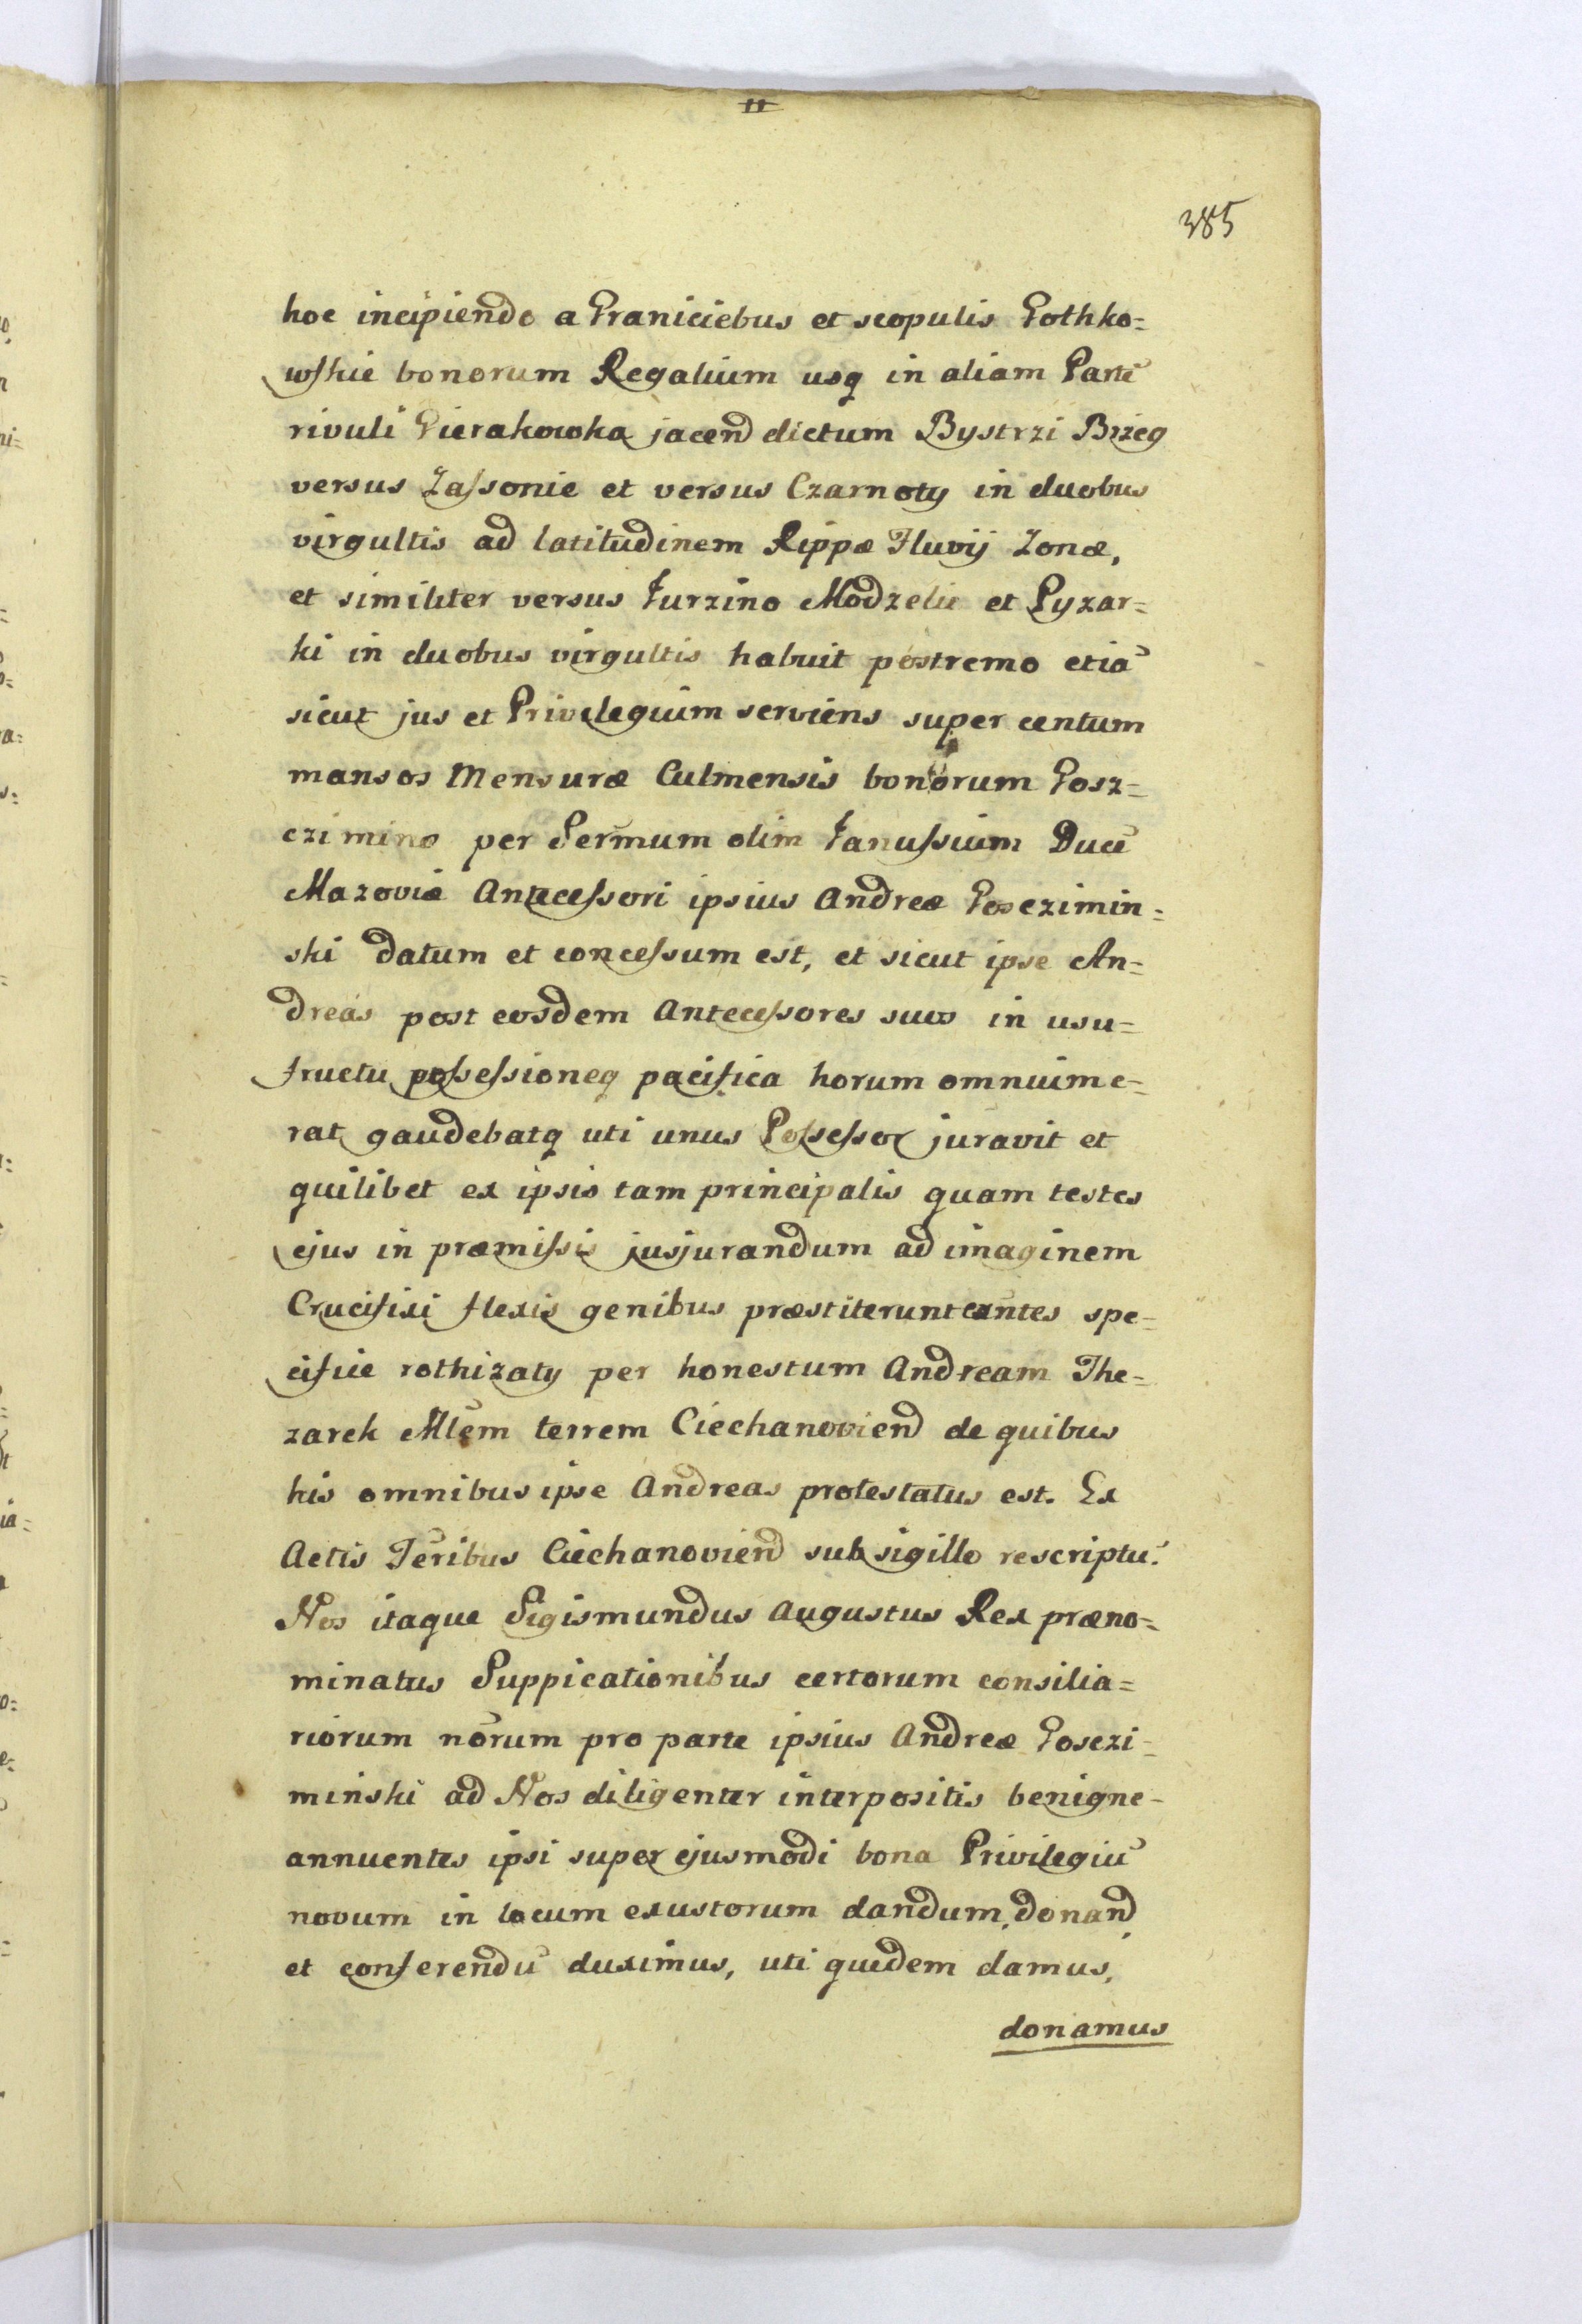 11
385
hoc incipiendo a Graniciebus et scopulis Gothko=
wskie bonorum Regalium usq in aliam Partē
rivuli Gierakowka jacend dictum Bystrzi Brzeg
versus Łassonie et versus Czarnoty in duobus
virgultis ad latitudinem Rippæ Fluvij Łonæ,
et similiter versus Jurzino Modzelie et Pyzar=
ki in duobus virgultis habuit postremo etiā
sicut jus et Privilegium serviens super centum
mansos Mensuræ Culmensis bonorum Gosz=
czimino per Sermum olim Janussium Ducē
Mazoviæ Antecessori ipsius Andreæ Gosczimin=
ski datum et concessum est, et sicut ipse An=
dreas post eosdem Antecessores suos in usu=
fructu possessioneq pacifica horum omnium e=
rat gaudebatq uti unus Possessor juravit et
quilibet ex ipsis tam principalis quam testes
ejus in præmissis jusjurandum ad imaginem
Crucifixi flexis genibus præstiterunt eūntes spe=
cifice rothizaty per honestum Andream The=
zarek Mlēm terrem Ciechanoviend de quibus
his omnibus ipse Andreas protestatus est. Ex
Actis Terībus Ciechanoviend sub sigillo rescriptū.
Nos itaque Sigismundus Augustus Rex præno=
minatus Suppicationibus certorum consilia=
riorum nōrum pro parte ipsius Andreæ Gosczi=
minski ad Nos diligenter interpositis benigne=
annuentes ipsi super ejusmodi bona Privilegiū
novum in locum exustorum dandum, donand,
et conferendū duximus, uti quidem damus,
donamus